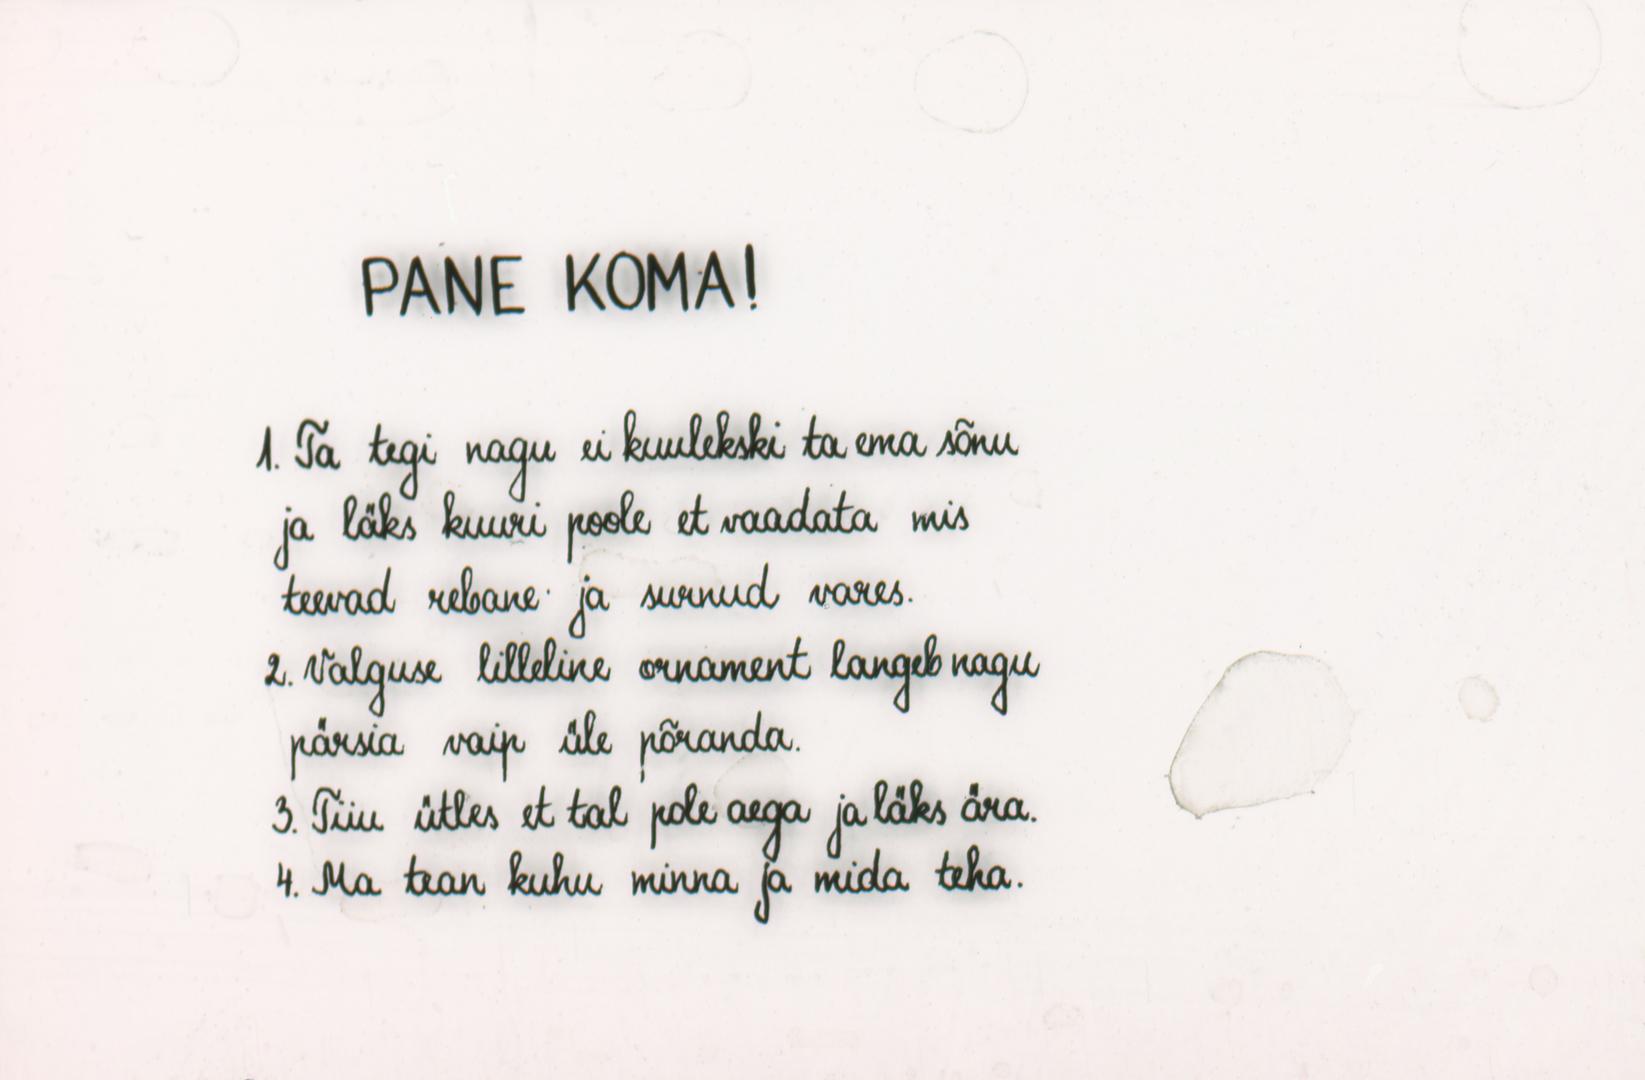 PANE KOMA!
1. Ta tegi nagu ei kuulekski ta ema sõnu
ja läks kuuri poole et vaadata mis
teevad rebane ja surnud vares.
2. Valguse lilleline ornament langeb nagu
pärsia vaip üle põranda.
3. Tiiu ütles et tal pole aega ja läks ära.
4. Ma tean kuhu minna ja mida teha.